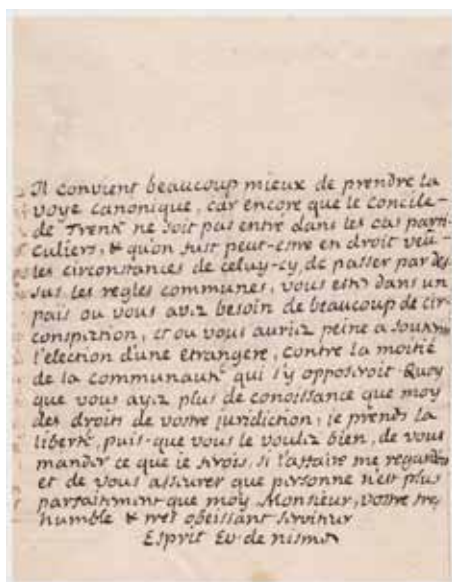 Il convient beaucoup mieux de prendre la
voye canonique, car encore que le concile
de Trente ne soit pas entré dans les cas parti-
culiers, & qu'on fust peut-estre en droit veü
les circonstances de celuy-cy, de passer par des
sus les regles communes, vous estes dans un
païs ou vous avez besoin de beaucoup de cir
conspection, et ou vous auriez peine a
l'election d'une etrangere, contre la moitié
de la communauté qui s'y opposeroit. Quoy
que vous ayez plus de conoissance que moy
des droits de vostre juridiction, ie prends la
liberté, puis-que vous le voulez bien, de vous
mander ce que ie ferois, si l'affaire me regardoit
et de vous assurer que personne n'est plus
parfaitement que moy Monsieur, vostre tres
humble & tres obeissant serviteur
Esprit Ev. de nismes